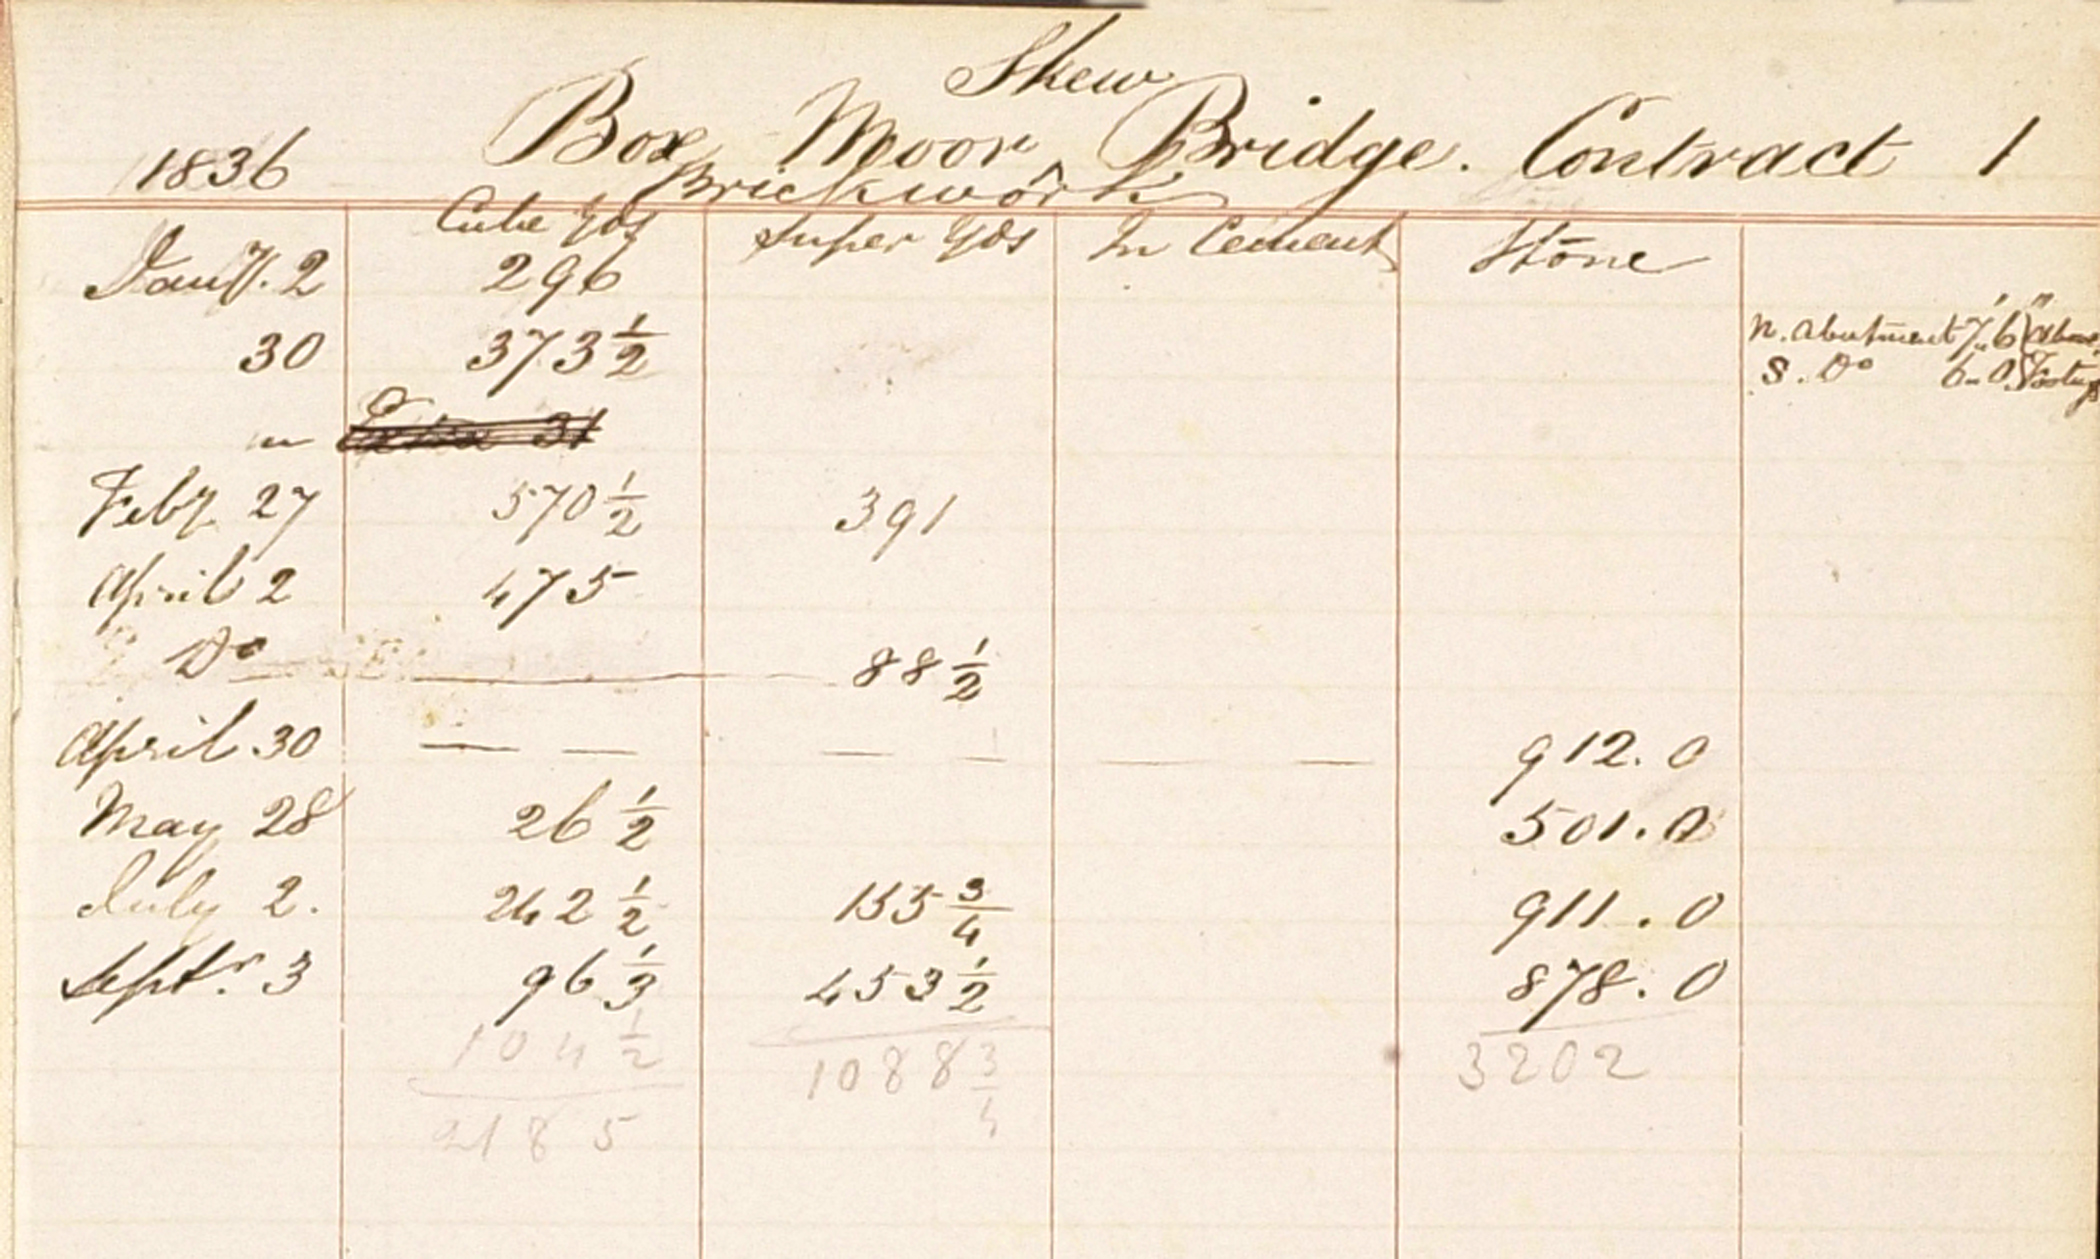 Skew
1836 Box Moor ^ Bridge. Contract 1
Brickwork
Cube Yds Super Yds In Cement Stone
Jany. 2 296
30 373 1/2 N. Abutment 7'..6" (Above
S. Do 6..0 (Footings
" Extra 31
Feby 27 570 1/2 391
April 2 475
Do 88 1/2
April 30 — — — — — — 912. 0
May 28 26 1/2 501. 0
July 2. 242 1/2 155 3/4 911. 0
Septr. 3 96 1/3 453 1/2 878. 0
104 1/2 1088 3/4 3202
2185